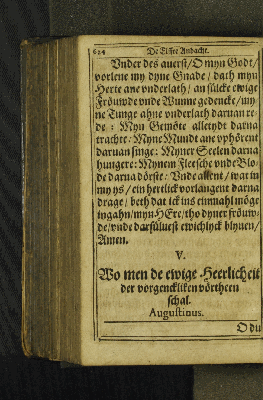 624 De Elffte Andacht.
Vnder des auerst/ O myn Godt/
vorlene my dyne Gnade / dath myn
Herte ane vnderlath / an sülcke ewige
Fröuwde vnde Wunne gedencke / my-
ne Tunge ahne vnderlath daruan re-
de : Myn Gemöte alletydt darna
trachte : Myne Mundt ane vphörent
daruan singe : Myner Seelen darna
hungere : Mynem Fleesche vnde Blo-
de darna dörste : Vnde allent / wat in
my ys / ein hertlick vorlangent darna
drage / beth dat ick ins einmahl möge
ingahn / myn HEre / tho dyner fröuw-
de / vnde darsüluest ewichlyck blyuen /
Amen.
V.
Wo men de ewige Heerlicheit
der vergenckliken vörtheen
schal.
Augustinus.
O du